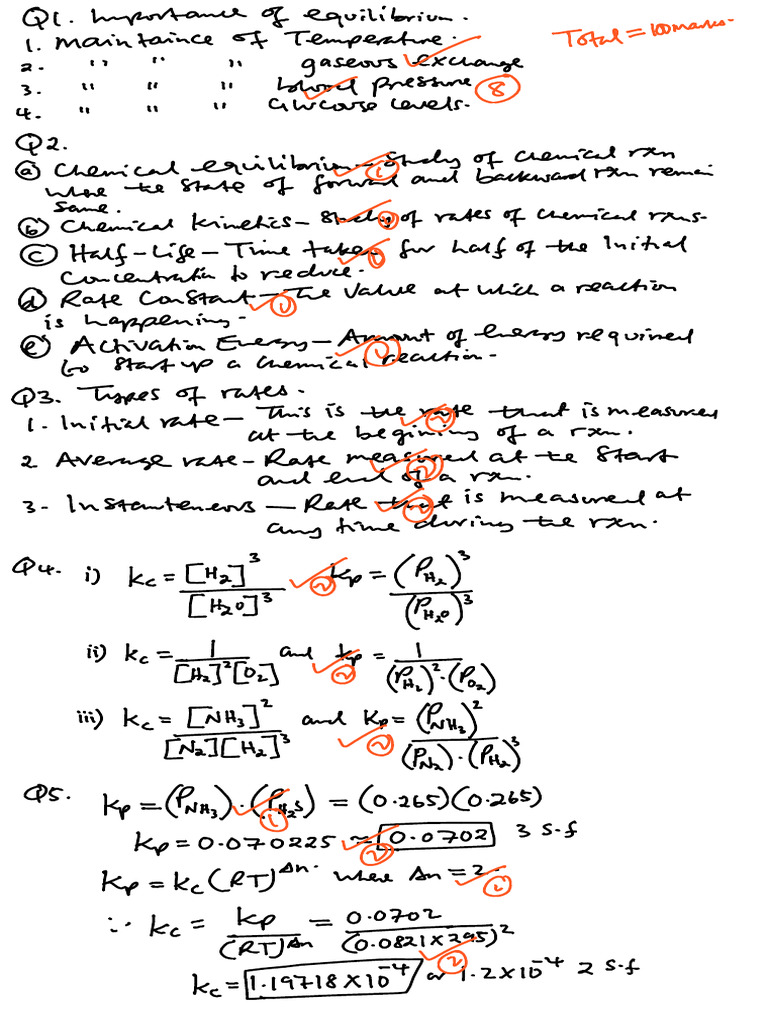 Q1. Importance of equilibrium.
1. Maintaince of Temperature.
Total = 100 marks.
2. " " " gaseous exchange
3. " " " blood pressure 8
4. " " " Glucose levels.
Q2.
(a) Chemical equilibrium – Study of chemical rxn 1
where the state of forward and backward rxn remain
same.
(b) Chemical Kinetics – Study of rates of chemical rxns. 1
(c) Half-Life – Time taken for half of the Initial 1
Concentration to reduce.
(d) Rate Constant – The value at which a reaction 1
is happening.
(e) Activation Energy – Amount of energy required
to start up a chemical reaction. 1
Q3. Types of rates.
1. Initial rate – This is the rate that is measures 2
at the begining of a rxn.
2 Average rate – Rate measured at te start 2
and end of a rxn.
3. Instanteneous – Rate that is measured at 2
any time during the rxn.
Q4. i) Kc = [H2]^3 / [H2O]^3 2 Kp = (P_H2)^3 / (P_H2O)^3
ii) Kc = 1 / [H2]^2[O2] and 2 Kp = 1 / (P_H2)^2 · (P_O2)
iii) Kc = [NH3]^2 / [N2][H2]^3 and 2 Kp = (P_NH3)^2 / (P_N2) · (P_H2)^3
Q5. Kp = (P_NH3) · (P_H2S) = (0.265)(0.265) 1
Kp = 0.070225 ≈ 0.0702 3 s.f 2
Kp = Kc (RT)^Δn. where Δn = 2. 1
∴ Kc = Kp / (RT)^Δn = 0.0702 / (0.0821 × 295)^2
Kc = 1.19718 × 10^-4 or 1.2 × 10^-4 2 s.f 2